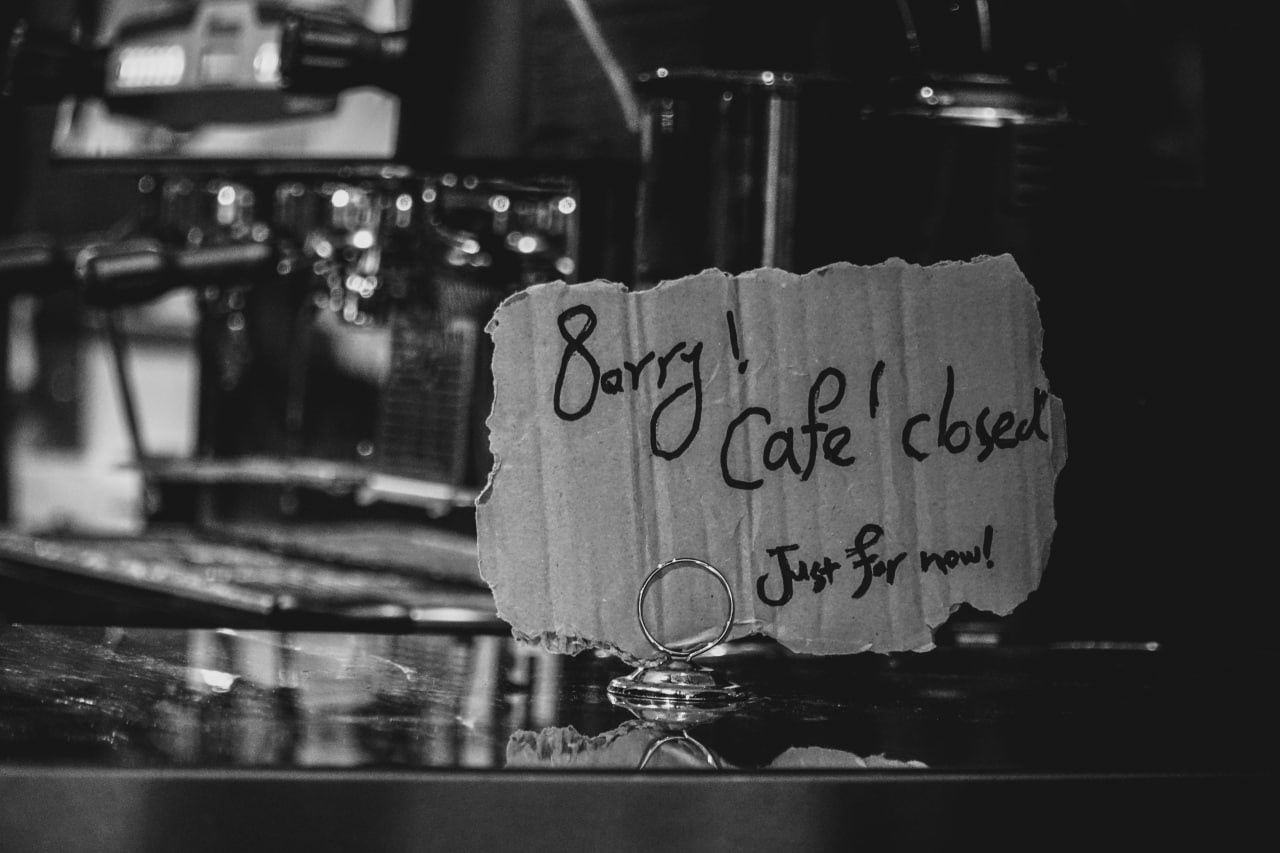 Sorry!
Cafe' closed
Just for now!